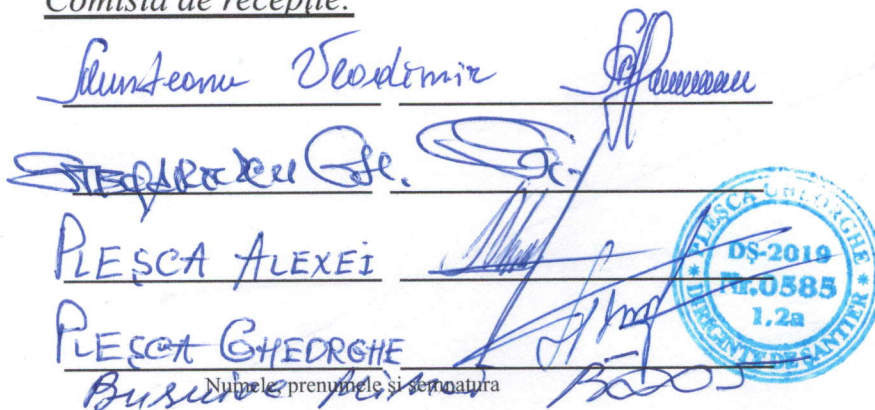 Comisia de recepție:
Munteanu Vladimir
STEGARESCU Gh.
PLEȘCA ALEXEI
PLEȘCA GHEORGHE
Numele, prenumele si semnatura
Busuioc
PLESCA GHEORGHE
DIRIGINTE DE SANTIER
DȘ-2019
Nr.0585
1,2a